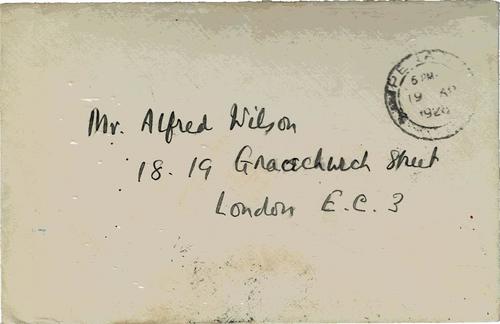 5 PM
19 AP
1928
Mr. Alfred Wilson
18. 19 Gracechurch Street
London E.C. 3